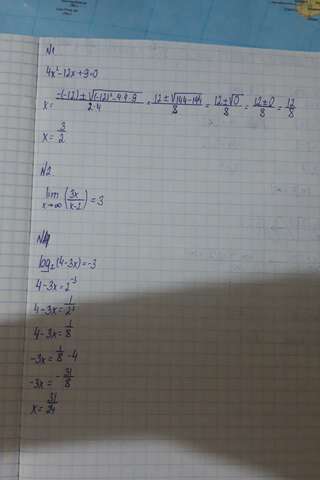 №1
4x²-12x+9=0
x= -(-12)±√(-12)²-4·4·9 / 2·4 = 12±√144-144 / 8 = 12±√0 / 8 = 12±0 / 8 = 12/8
x= 3/2
№2
lim x→∞ (3x/x-2) = 3
№4
log₂(4-3x)=-3
4-3x=2⁻³
4-3x= 1/2³
4-3x= 1/8
-3x= 1/8 -4
-3x= -31/8
x= 31/24